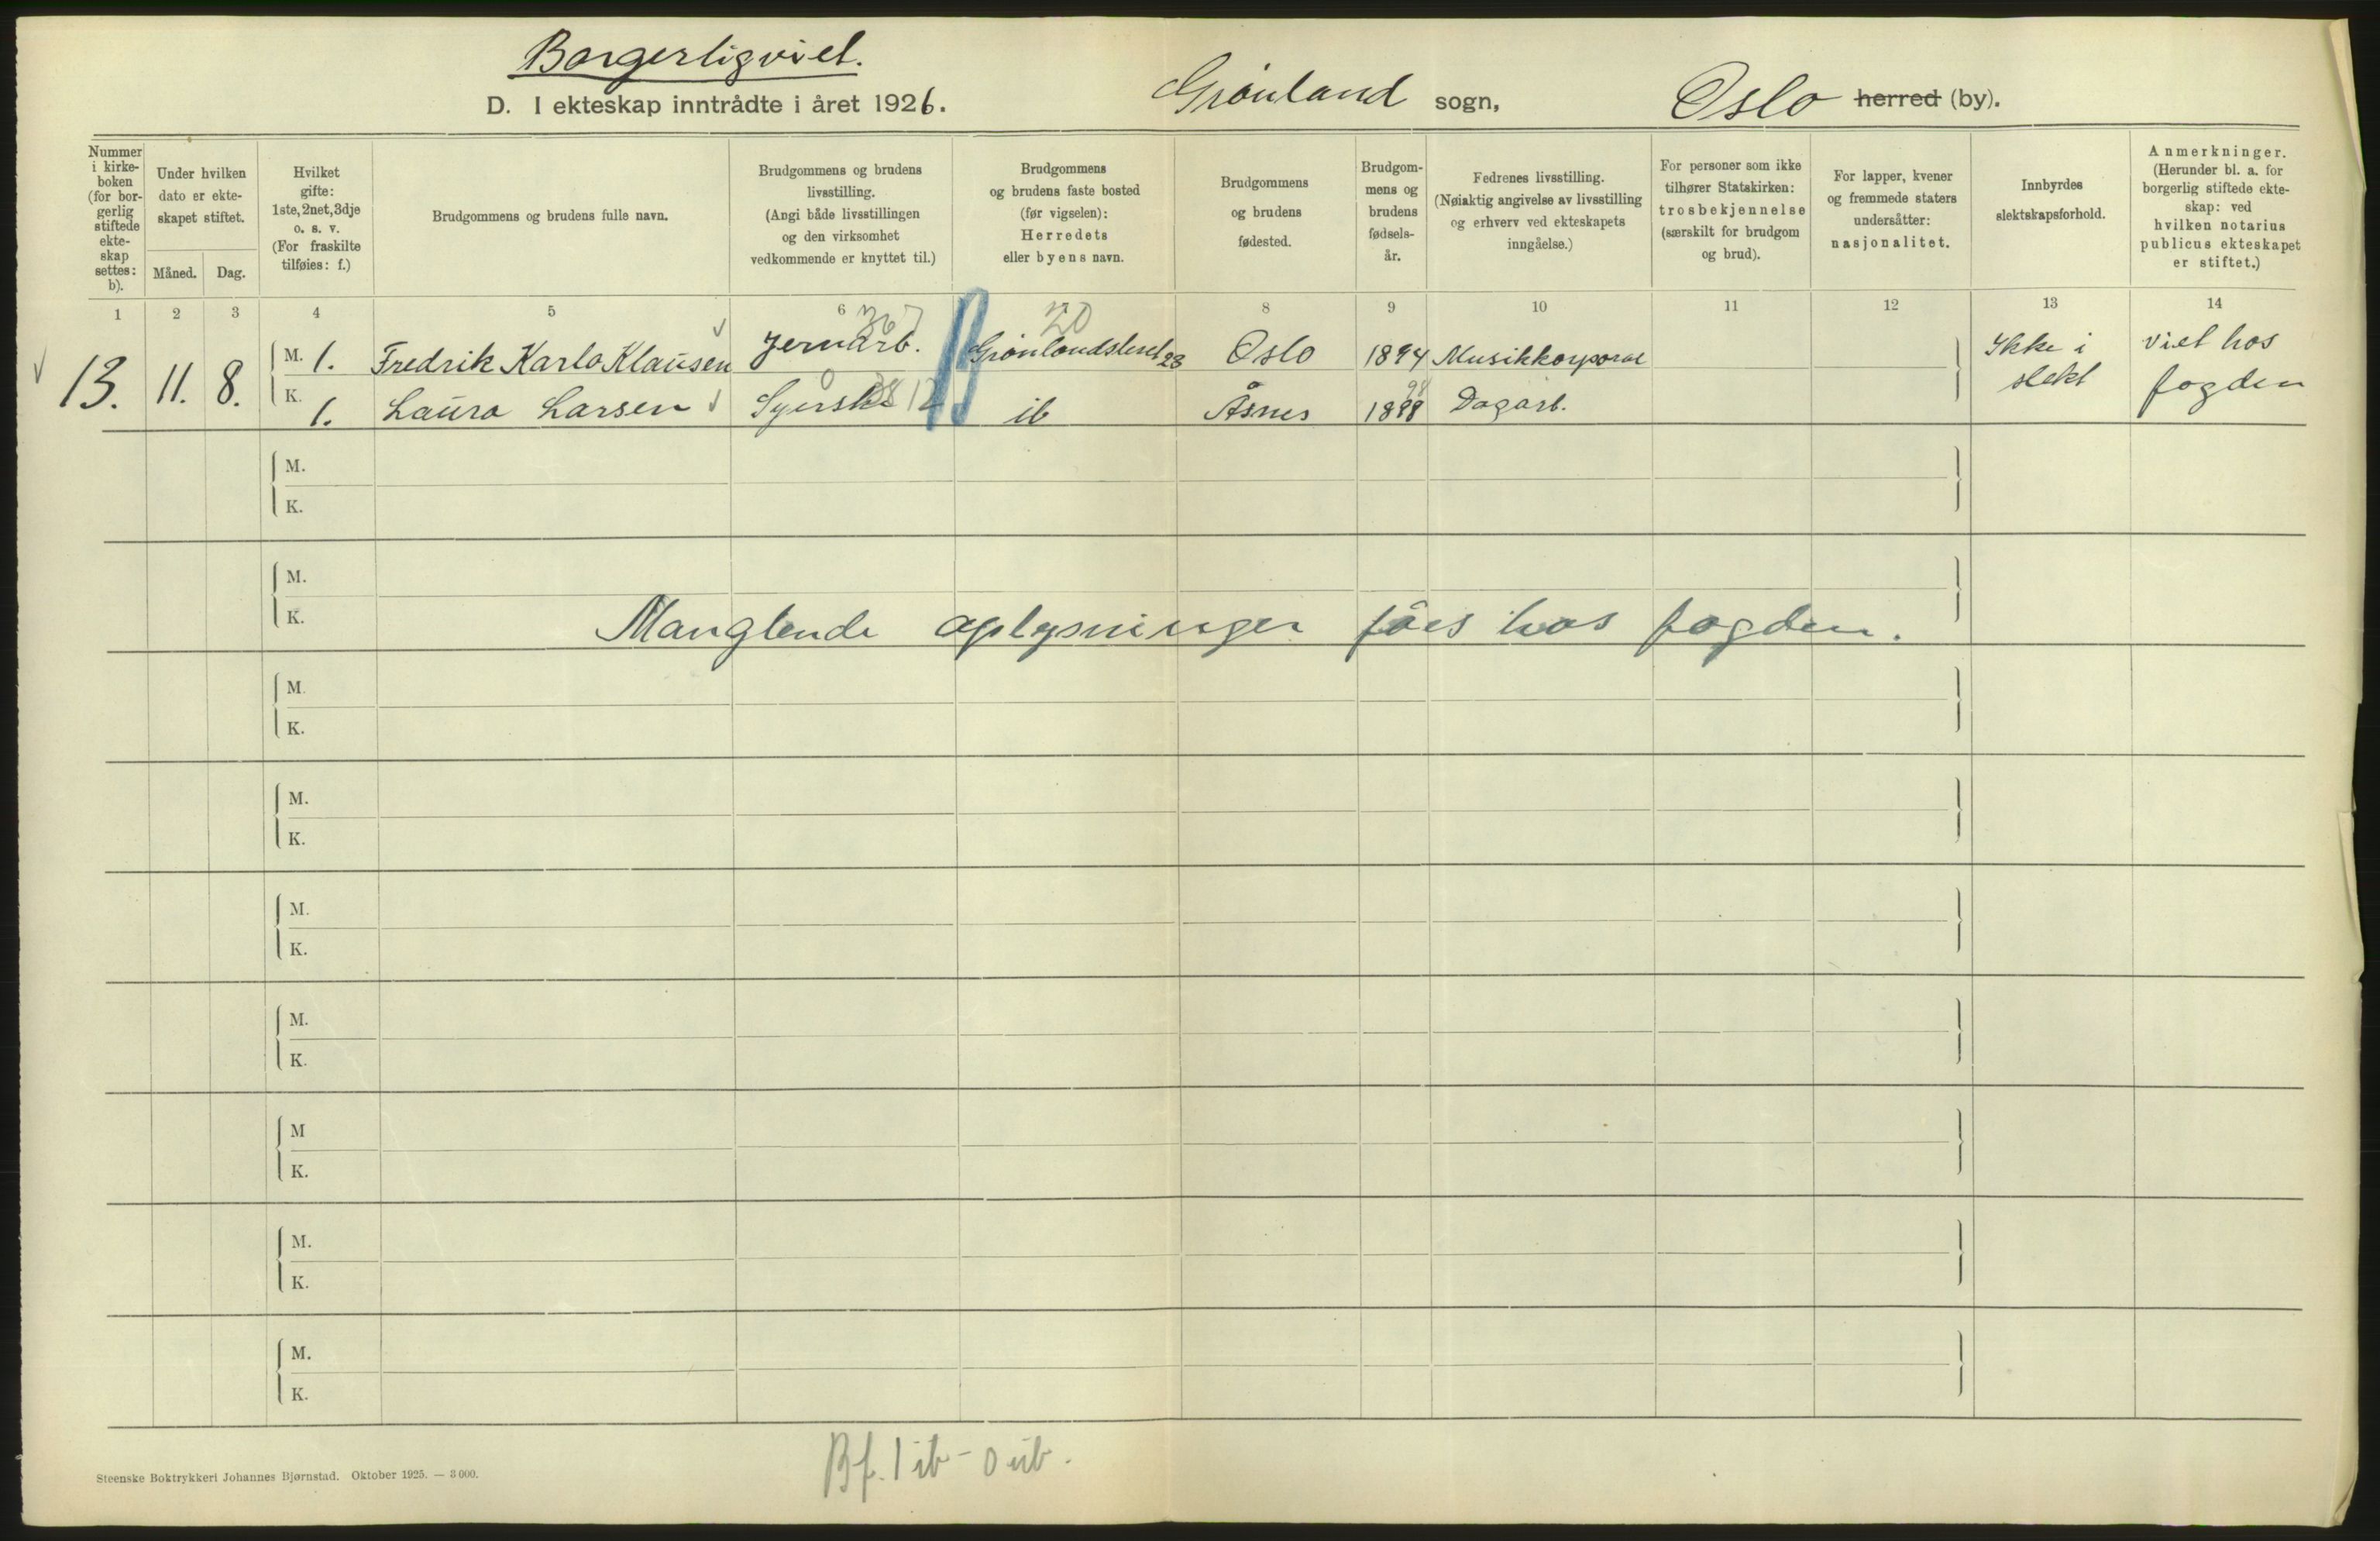 Borgerligviet.
D. I ekteskap inntrådte i året 1926. Grønland sogn, Oslo herred (by).
Nummer i kirke-boken (for bor-gerlig stiftede ekte-skap settes: b).
Under hvilken dato er ekte-skapet stiftet.
Måned. Dag.
Hvilket gifte: 1ste, 2net, 3dje o. s. v. (For fraskilte tilføies: f.)
Brudgommens og brudens fulle navn.
Brudgommens og brudens livsstilling. (Angi både livsstillingen og den virksomhet vedkommende er knyttet til.)
Brudgommens og brudens faste bosted (før vigselen): Herredets eller byens navn.
Brudgommens og brudens fødested.
Brudgom-mens og brudens fødsels-år.
Fedrenes livsstilling. (Nøiaktig angivelse av livsstilling og erhverv ved ekteskapets inngåelse.)
For personer som ikke tilhører Statskirken: trosbekjennelse (særskilt for brudgom og brud).
For lapper, kvener og fremmede staters undersåtter: nasjonalitet.
Innbyrdes slektskapsforhold.
Anmerkninger. (Herunder bl. a. for borgerlig stiftede ekte-skap: ved hvilken notarius publicus ekteskapet er stiftet.)
1 2 3 4 5 6 7 8 9 10 11 12 13 14
20
13. 11. 8. M. 1. Fredrik Karlo Klausen Jernarb. Grønlandsleret 23 Oslo 1894 Musikkorporal Ikke i slekt Viet hos fogden
K. 1. Laura Larsen Syerske ib Åsnes 1898 Dagarb.
98
M.
K.
M.
K.
Manglende oplysninger fåes hos fogden.
M.
K.
M.
K.
M.
K.
M.
K.
M
K.
M.
K.
M.
K.
Bf. 1 ib - 0 ub.
Steenske Boktrykkeri Johannes Bjørnstad. Oktober 1925. — 3 000.